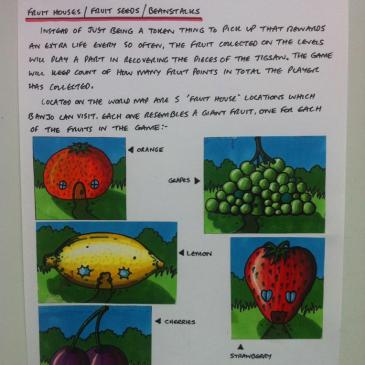 FRUIT HOUSES / FRUIT SEEDS / BEANSTALKS
INSTEAD OF JUST BEING A TOKEN THING TO PICK UP THAT REWARDS
AN EXTRA LIFE EVERY SO OFTEN, THE FRUIT COLLECTED ON THE LEVELS
WILL PLAY A PART IN RECOVERING THE PIECES OF THE JIGSAW. THE GAME
WILL KEEP COUNT OF HOW MANY FRUIT POINTS IN TOTAL THE PLAYER
HAS COLLECTED.
LOCATED ON THE WORLD MAP ARE 5 'FRUIT HOUSE' LOCATIONS WHICH
BANJO CAN VISIT. EACH ONE RESEMBLES A GIANT FRUIT, ONE FOR EACH
OF THE FRUITS IN THE GAME:-
ORANGE
GRAPES
LEMON
CHERRIES
STRAWBERRY